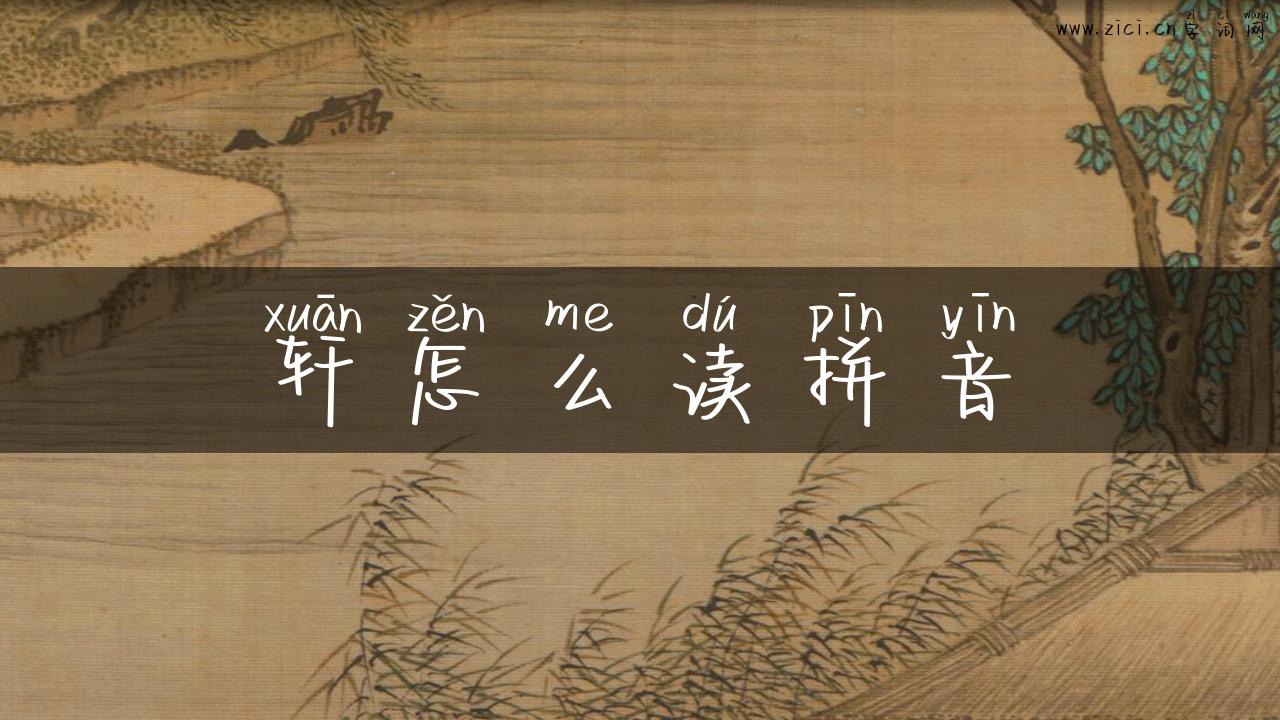 zì cí wǎng
www.zici.cn字词网
xuān zěn me dú pīn yīn
轩怎么读拼音